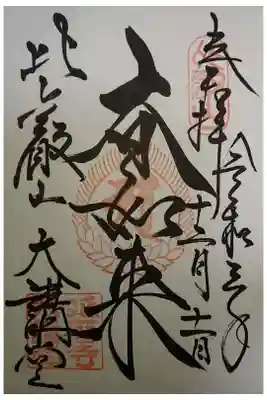 奉拝 令和三年
十二月十一日
大日如来
比叡山 大講堂